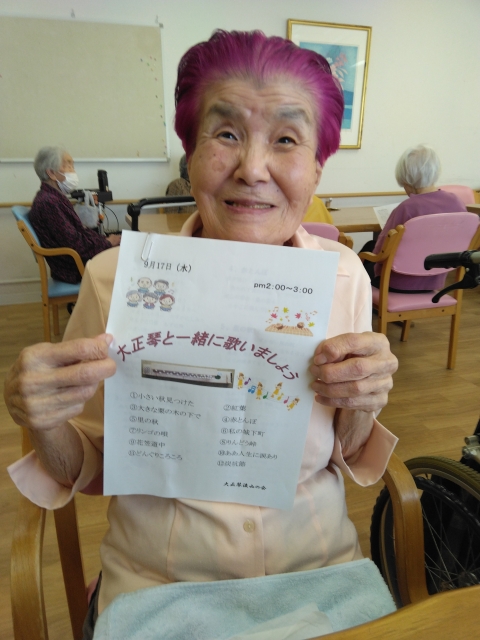 9月17日（水）
pm2:00～3:00
大正琴と一緒に歌いましょう
①小さい秋見つけた
②紅葉
③大きな栗の木の下で
④赤とんぼ
⑤里の秋
⑥私の城下町
⑦リンゴの唄
⑧りんどう峠
⑨花笠道中
⑩ああ人生に涙あり
⑪どんぐりころころ
⑫炭坑節